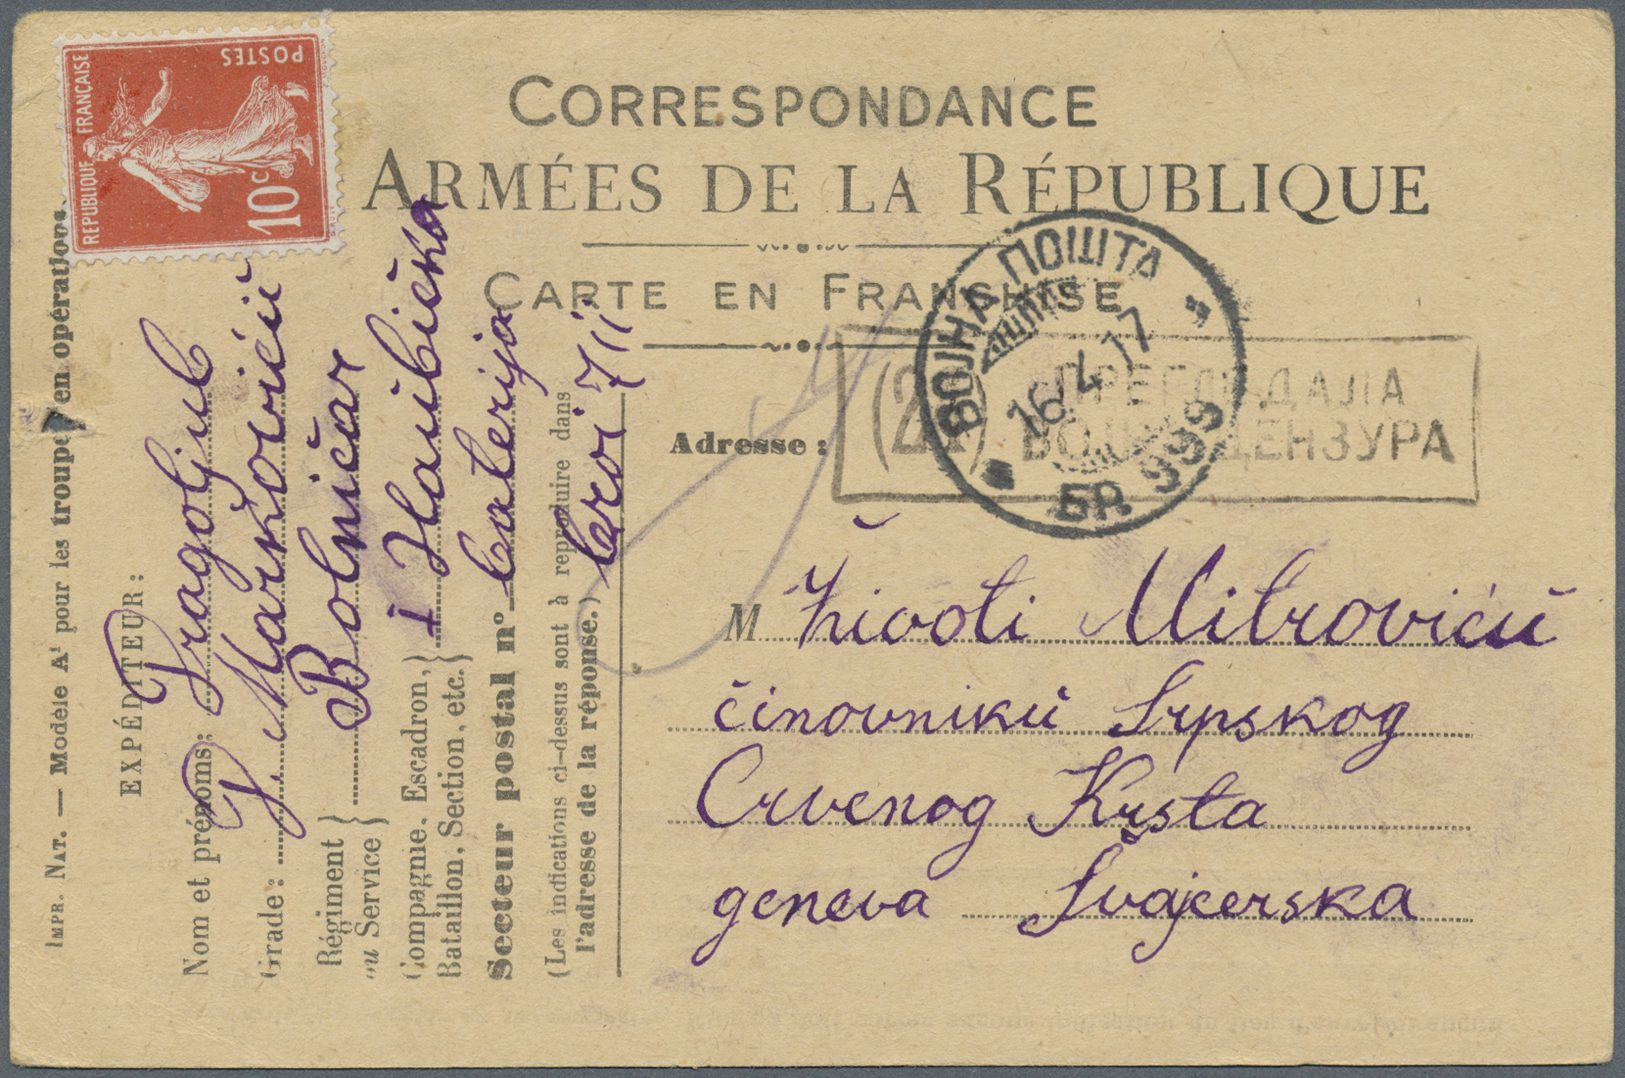 CORRESPONDANCE
ARMÉES DE LA RÉPUBLIQUE
CARTE EN FRANCHISE
RÉPUBLIQUE FRANÇAISE
POSTES
10 c
ВОЈНА ПОШТА
16 4 17
БР. 999
ПРЕГЛЕДАЛА
ВОЈНА ЦЕНЗУРА
Adresse :
M Životi Mitrovicú
činovnikú Srpskog
Crvenog Krsta
geneva Švajcerska
IMPR. NAT. — Modèle A¹ pour les troupes en opérations.
EXPÉDITEUR :
Nom et prénoms : Dragoljub
Grade : Markovicú
Régiment
ou Service } Bolničar
Compagnie, Escadron,
Bataillon, Section, etc. } I Haubička
Secteur postal n° baterija
(Les indications ci-dessus sont à reproduire dans
l'adresse de la réponse.)